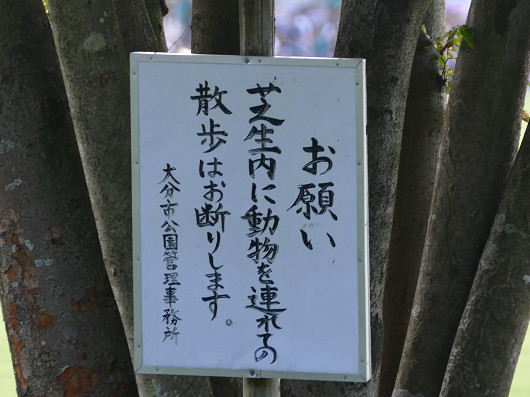 お願い
芝生内に動物を連れての
散歩はお断りします。
大分市公園管理事務所